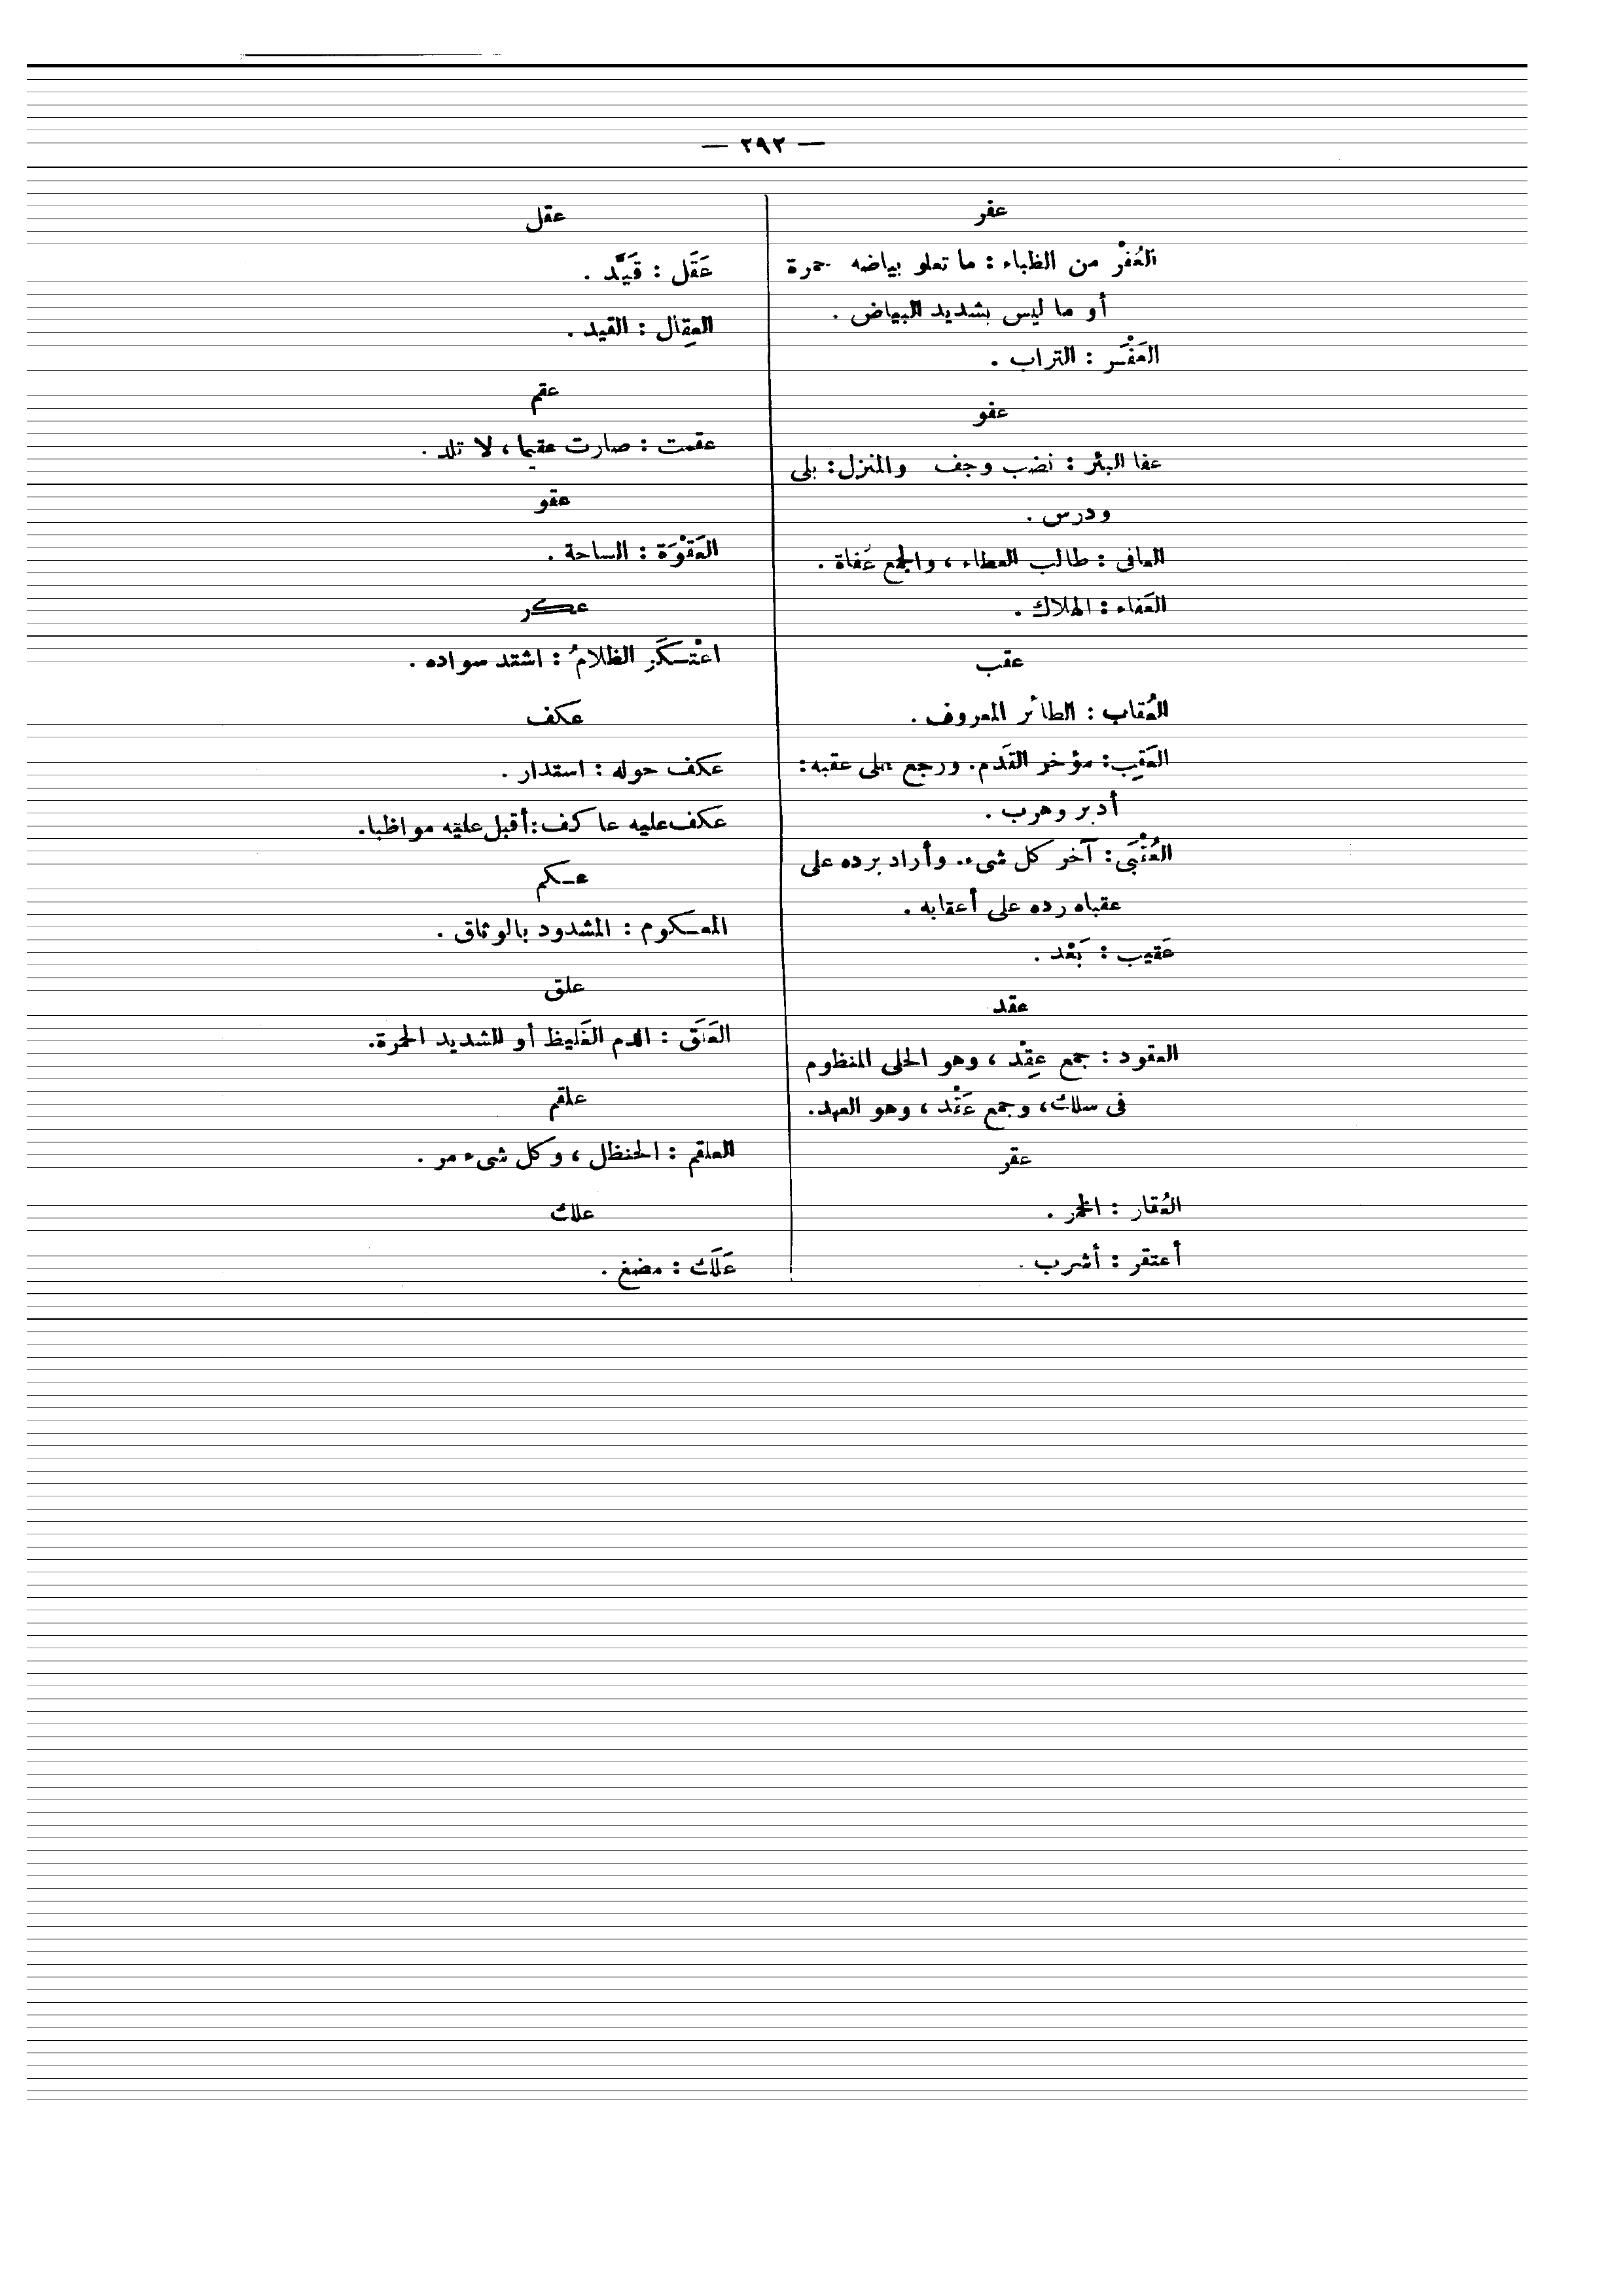 — ٢٩٢ —
عفر
العُفْر من الظباء : ما تعلو بياضه حمرة
أو ما ليس بشديد البياض .
العَفْـَر : التراب .
عفو
عفا البئر : نضب وجف والمنزل : بلى
ودرس .
العافى : طالب العطاء ، والجمع عُفاة .
العَفاء : الهلاك .
عقب
العُقاب : الطائر المعروف .
العَقِب : مؤخر القَدَم . ورجع على عقبه :
أدبر وهرب .
العُقْبَى : آخر كل شىء . وأراد برده على
عقباه رده على أعقابه .
عَقيب : بَعْد .
عقد
العقود : جمع عِقْد ، وهو الحلى المنظوم
فى سلك ، وجمع عَقْد ، وهو العهد .
عقر
العُقار : الخمر .
أعتقر : أشرب .
عقل
عَقَل : قَيَّد .
العِقال : القيد .
عقم
عقمت : صارت عقيما ، لا تلد .
عقو
العَقْوَة : الساحة .
عكر
اعْتـكَرَ الظلامُ : اشتد سواده .
عكف
عكف حوله : استدار .
عكف عليه عاكف : أقبل عليه مواظبا .
عـكم
المعـكوم : المشدود بالوثاق .
علق
العَلَق : الدم الغَليظ أو الشديد الحمرة .
علقم
العلقم : الحنظل ، وكل شىء مر .
علك
عَلَك : مضغ .